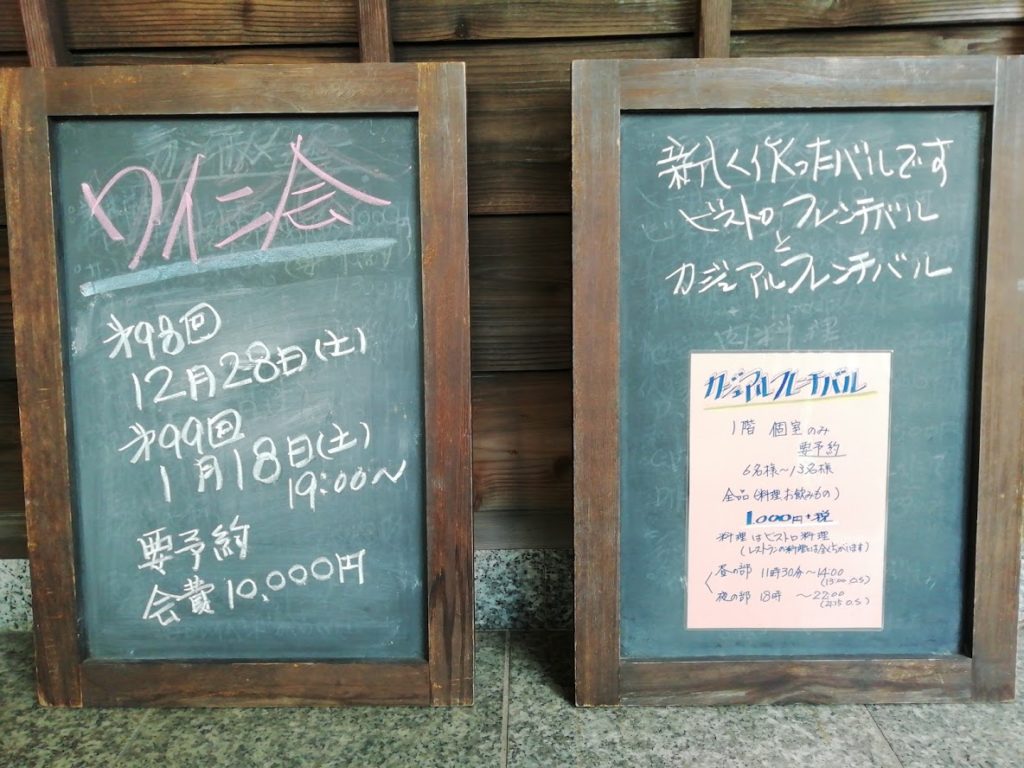 ワイン会
第98回
12月28日(土)
第99回
1月18日(土)
19:00〜
要予約
会費10,000円
新しく作ったバルです
ビストロ フレンチバル
と
カジュアルフレンチバル
肉料理
カジュアルフレンチバル
1階 個室のみ
要予約
6名様〜13名様
全品(料理、お飲みもの)
1,000円+税
料理はビストロ料理
(レストランの料理とは全くちがいます)
昼の部 11時30分〜14:00
(13:00 O.S)
夜の部 18時 〜22:00
(21:15 O.S.)